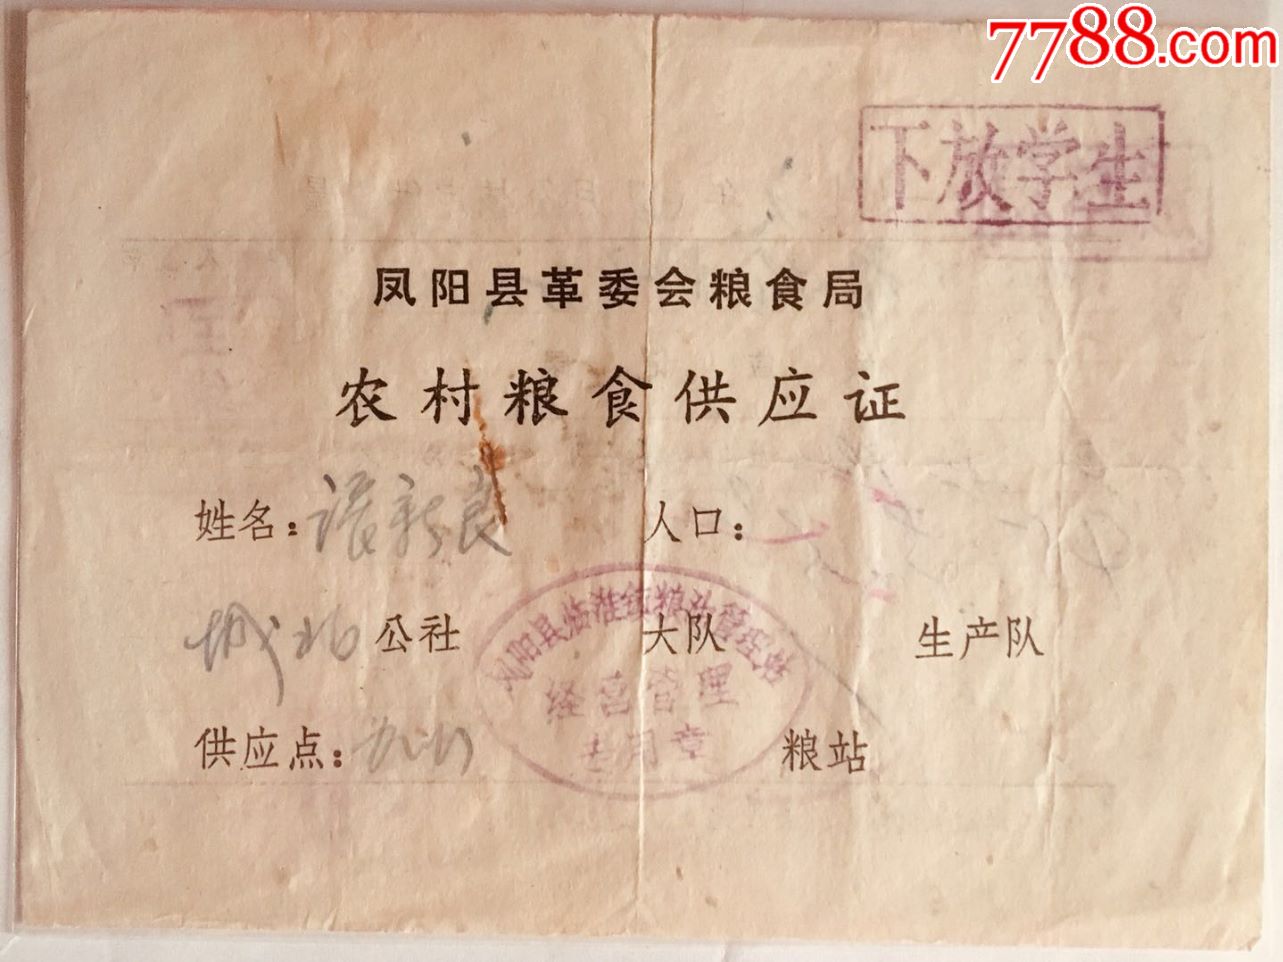 7788.com
下放学生
凤阳县革委会粮食局
农村粮食供应证
姓名： 人口：
城北公社 大队 生产队
供应点： 粮站
凤阳县临淮红粮油管理站
经营管理
专用章